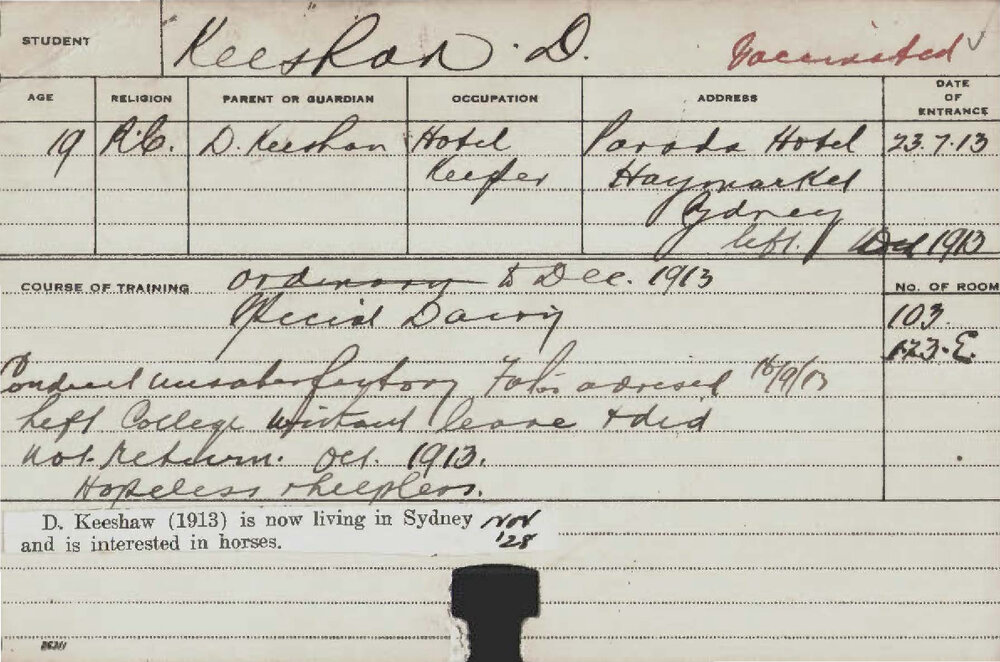 STUDENT
Keeshan D.
Vaccinated
AGE
RELIGION
PARENT OR GUARDIAN
OCCUPATION
ADDRESS
DATE OF ENTRANCE
19
R.C.
D. Keeshan
Hotel
Keeper
Hotel
Haymarket
Sydney
23.7.13
left. Dec 1913
COURSE OF TRAINING
Ordinary to Dec. 1913
Special Dairy
No. OF ROOM
103
123.E.
Conduct unsatisfactory advised 16/9/13
Left College without leave & did
not return. Oct. 1913.
Hopeless & helpless.
D. Keeshaw (1913) is now living in Sydney
and is interested in horses.
Nov
'28